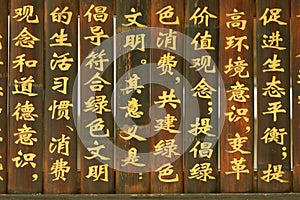 促进生态平衡;提
高环境意识,变革
价值观念;提倡绿
色消费,共建绿色
文明。其意义是
倡导符合绿色文明
的生活习惯 消费
观念和道德意识,